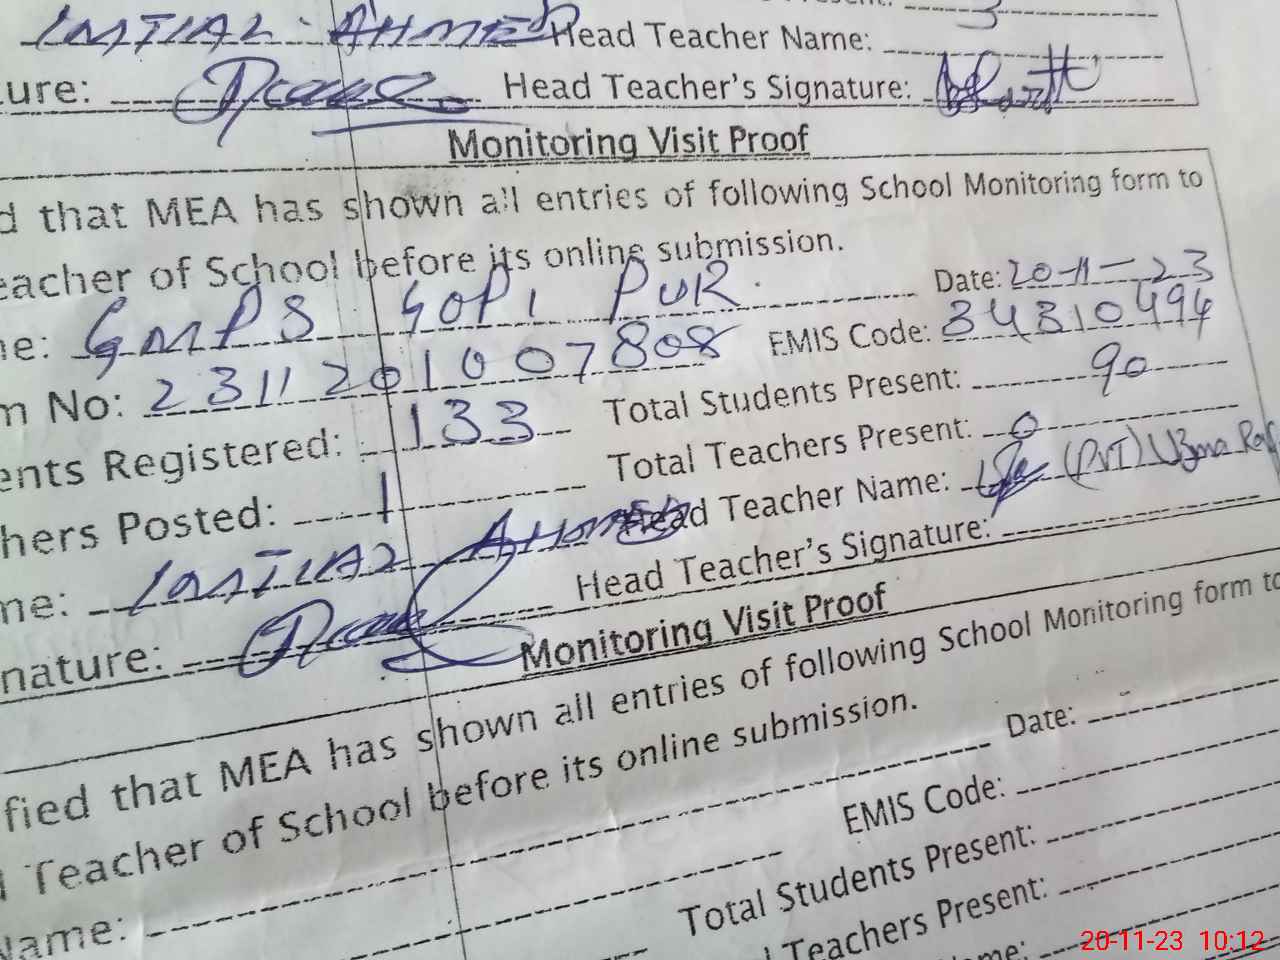 AHMED Head Teacher Name:
ure: Head Teacher's Signature:
Monitoring Visit Proof
d that MEA has shown all entries of following School Monitoring form to
eacher of School before its online submission.
e: GMPS GOPI PUR Date: 20-11-23
m No: 2311201007808 EMIS Code: 34310494
ents Registered: 133 Total Students Present: 90
hers Posted: 1 Total Teachers Present: 0
me: AHMED Head Teacher Name: (PVT) Uzma
nature: Head Teacher's Signature:
Monitoring Visit Proof
fied that MEA has shown all entries of following School Monitoring form to
Teacher of School before its online submission.
Name: Date:
EMIS Code:
Total Students Present:
l Teachers Present:
me:
20-11-23 10:12